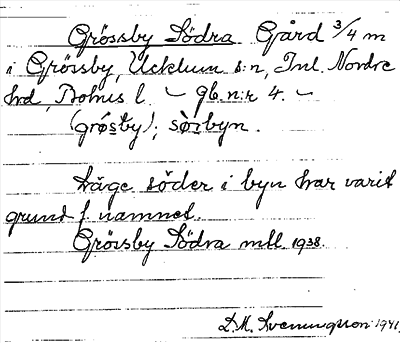 Grössby Södra Gård 3/4 m
i Grössby, Ucklum s:n, Inl. Nordre
hrd, Bohus l. – gb. n:r 4. –
(grǿsby); sörbyn.
Läge söder i byn har varit
grund f. namnet.
Grössby Södra mtl. 1938.
D.M. Svenningsson 1941.